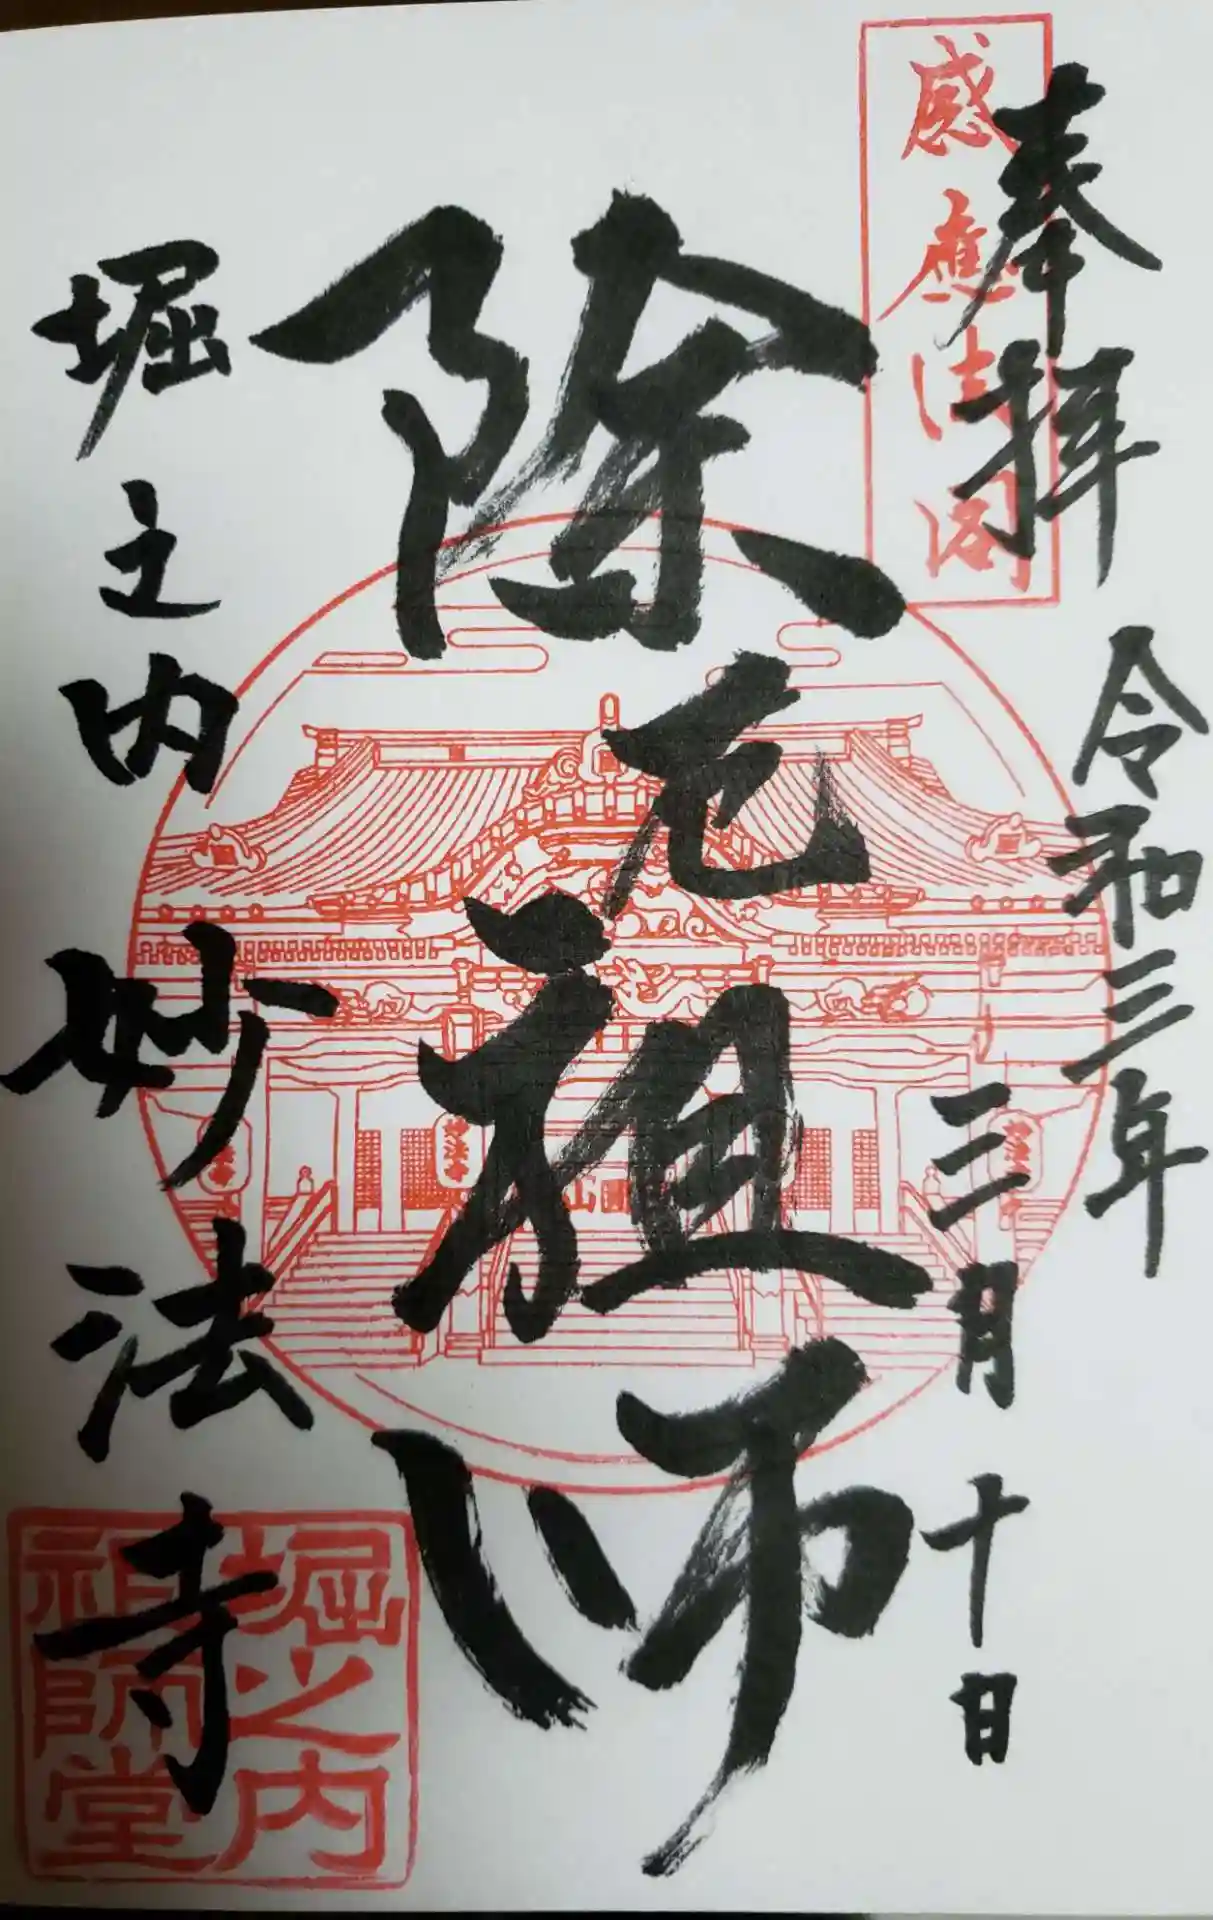 奉拝
令和三年
三月十日
感應法閣
除厄祖師
堀之内
妙法寺
妙法寺
妙法寺
堀之内
祖師堂